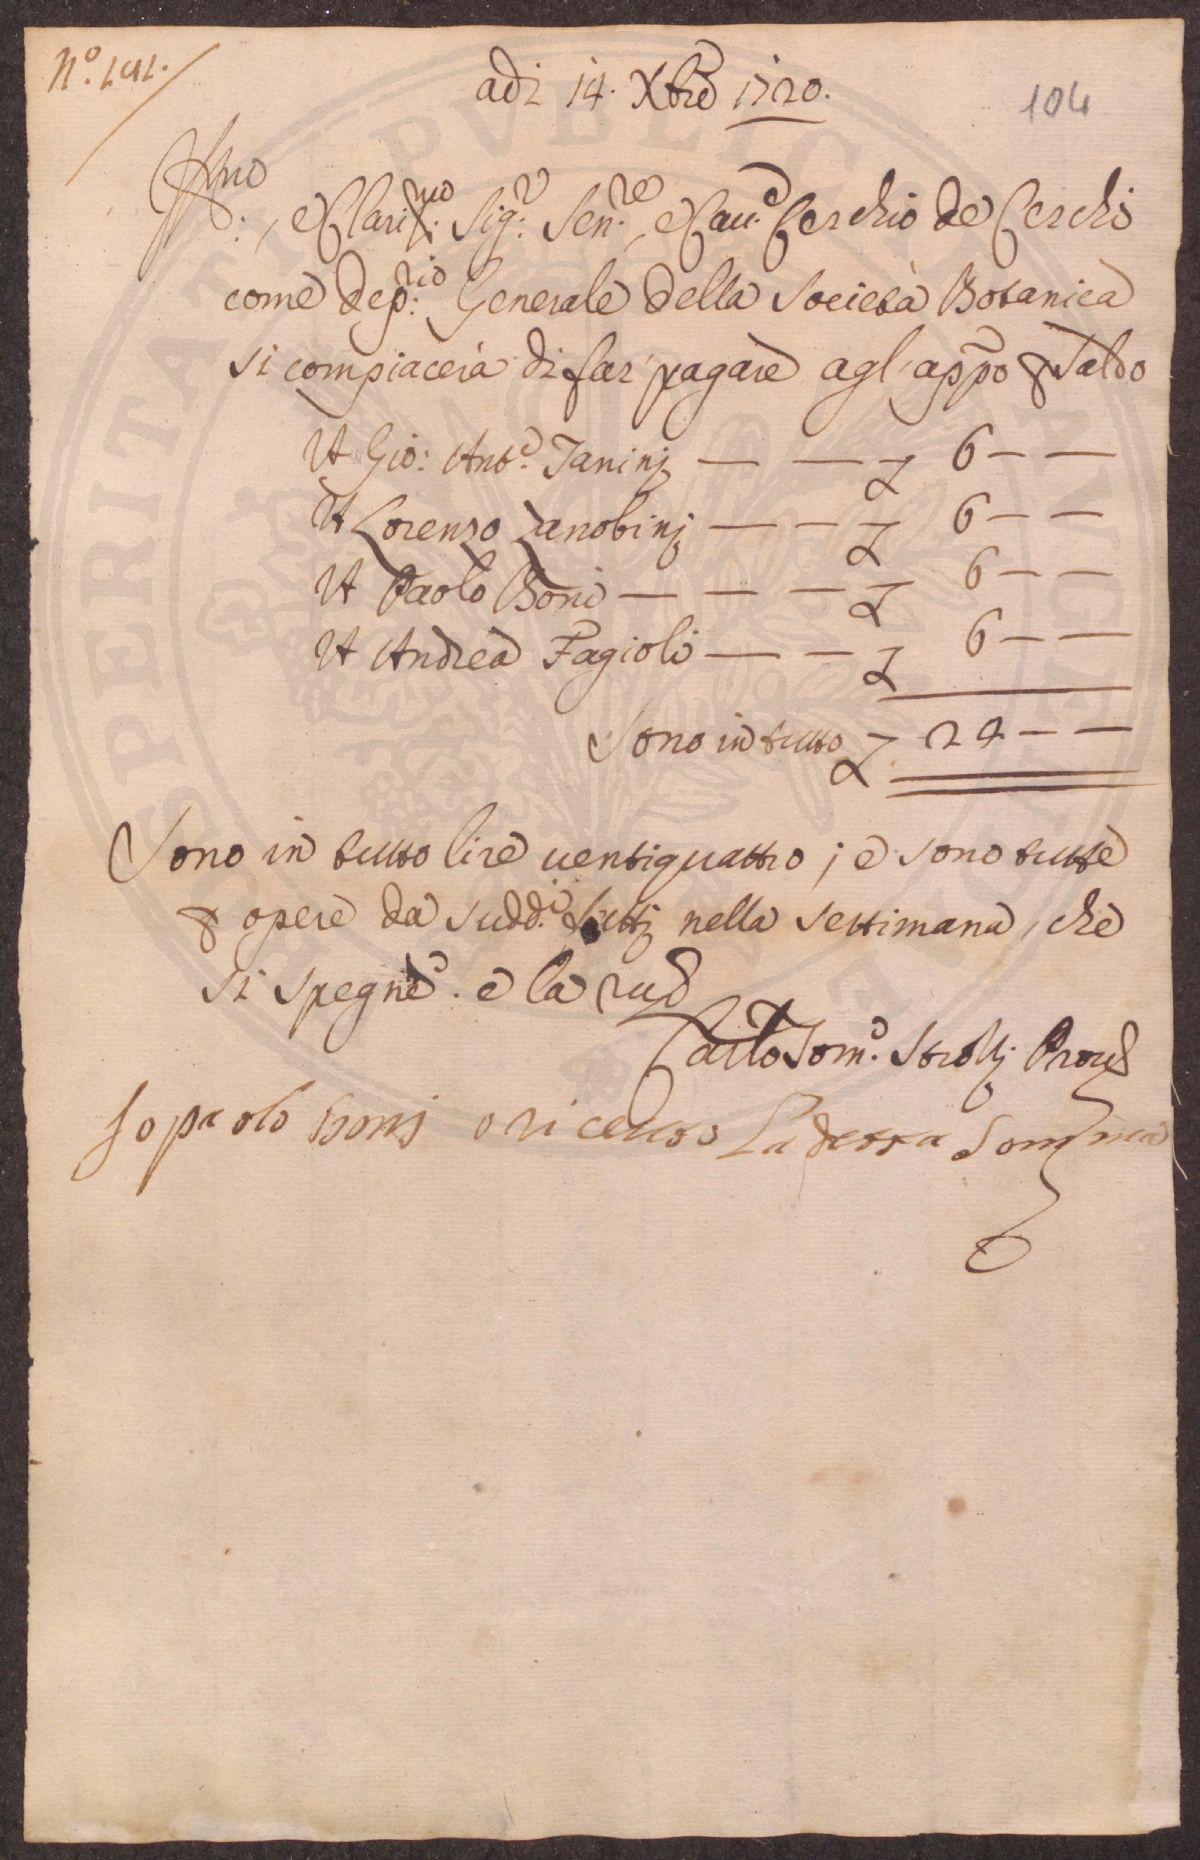 N.° 141.
adi 14. Xbre 1720.
104
Ill.mo, e Clariss.mo Sig.r Sen.re, e Cau.e Cerchio de Cerchi
come dep.rio Generale della Società Botanica
si compiacerà di far pagare agl'appo p Saldo
A Gio: Ant.o Janinj — — £ 6 — —
A Lorenzo Zanobinj — — £ 6 — —
A Paolo Boni — — — £ 6 — —
A Andrea Fagioli — — £ 6 — —
Sono in tutto £ 24 — —
Sono in tutto lire uentiquattro; e sono tutte
p opere da sudd.i fattj nella settimana, che
si spegne. e la
Carlo Tom.o Strozzj Prou.re
Io paolo Bonj o riceuto La detta Somma
PVBLICAE
PROSPERITATI